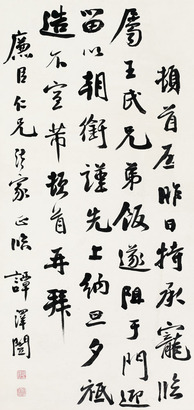 頓首启昨日持承寵临
屬王氏兄弟飯遂阻于門迎
留以朝銜謹先上納旦夕祗
造不宣芾頓首再拜
廉臣仁兄行家正临 譚澤闓